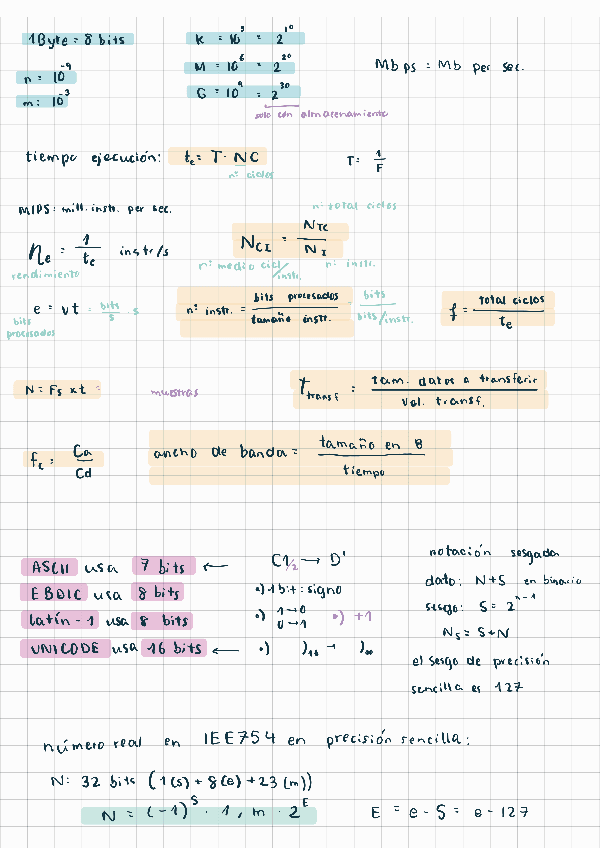 1Byte = 8 bits
K = 10³ = 2¹⁰
M = 10⁶ = 2²⁰
Mbps = Mb per sec.
n = 10⁻⁹
G = 10⁹ = 2³⁰
m: 10⁻³
solo con almacenamiento
tiempo ejecución: te = T · NC
T: 1/F
nº ciclos
MIPS: mill. instr. per sec.
nº total ciclos
ηe = 1/te instr/s
NCI = NTC/NI
rendimiento
nº medio cicl/instr.
nº instr.
e = vt = bits/s · s
bits procesados
nº instr. = bits procesados/tamaño instr. = bits/bits/instr.
f = total ciclos/te
N = Fs x t =
muestras
t transf = tam. datos a transferir/vel. transf.
fc = Ca/Cd
ancho de banda = tamaño en B/tiempo
ASCII usa 7 bits ←
C1/2 → D'
EBDIC usa 8 bits
•) 1 bit: signo
Latín-1 usa 8 bits
•) 1→0 0→1 •) +1
UNICODE usa 16 bits ←
notación sesgada
dato: N+S en binario
sesgo: S = 2ⁿ⁻¹
Ns = S+N
el sesgo de precisión
sencilla es 127
número real en IEE754 en precisión sencilla:
N: 32 bits (1(s) + 8(e) + 23(m))
N = (-1)^S · 1, m · 2^E
E = e - S = e - 127